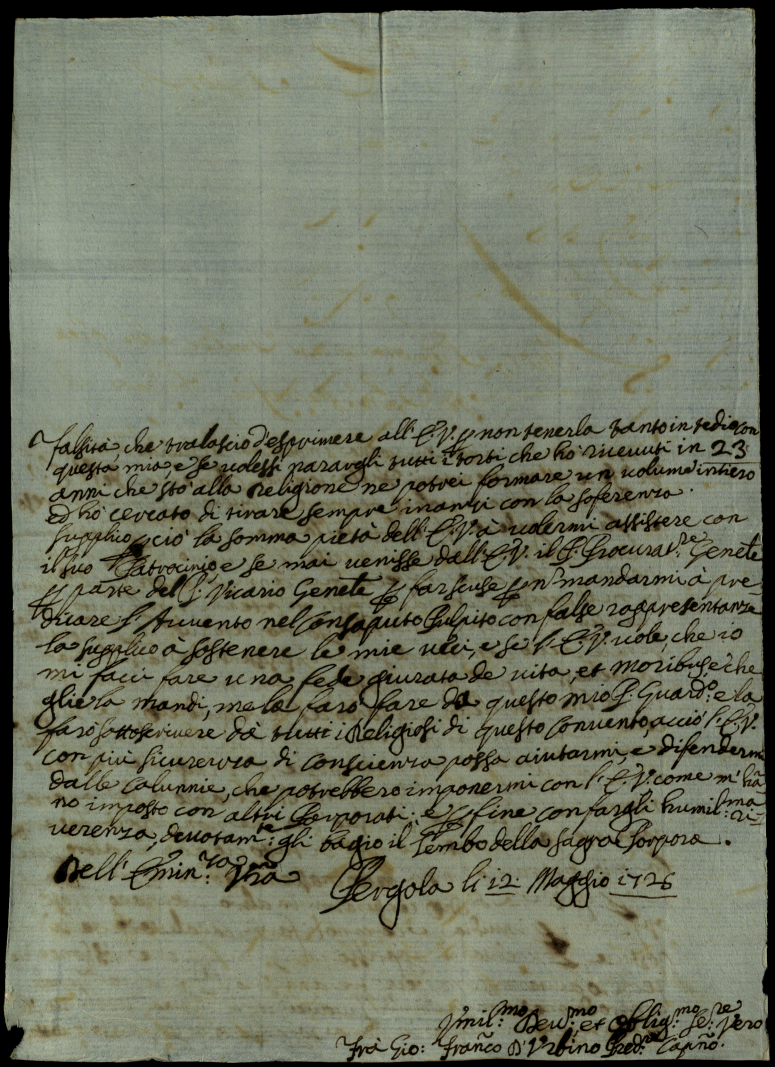 falsità, che tralascio d'esprimere all'E.V. p non tenerla tanto in tedio con
questa mia, e se volessi narargli tutti i torti che hò ricevuti in 23
anni che stò alla Religione ne potrei formare un volume intiero
ed hò cercato di tirare sempre inanzi con la soferenza.
Supplico pciò la somma pietà dell'E.V. à volermi assistere con
il suo Patrocinio, e se mai venisse dall'E.V. il P. Procurat.re Gen.le
p parte del P. Vicario Gen.le p far scuse p n mandarmi à pre-
dicare l'Avvento nel Consaputo Pulpito con false rappresentanze
la supplico à sostenere le mie veci, e se l'E.V. vole, che io
mi facci fare una fede giurata de vita, et moribus, e che
glie la mandi, me la farò fare da questo mio P. Guard.o, e la
farò sottoscrivere dà tutti i Religiosi di questo Convento, acciò l'E.V.
con più sicurezza di Conscienza possa aiutarmi, e difendermi
dalle Calunnie, che potrebbero impormi con l'E.V. come m'hãn-
no imposto con altri Porporati; e p fine con fargli humil.ma ri-
verenza, devotam.te gli bagio il Lembo della Sagra Porpora.
Dell'Emin.za Vra
Pergola li 12 Maggio 1726
Umil.mo Dev.mo, et Oblig.mo Se.re Vero
Frà Gio: Franc̃o D'Urbino Pred.re Capñо.